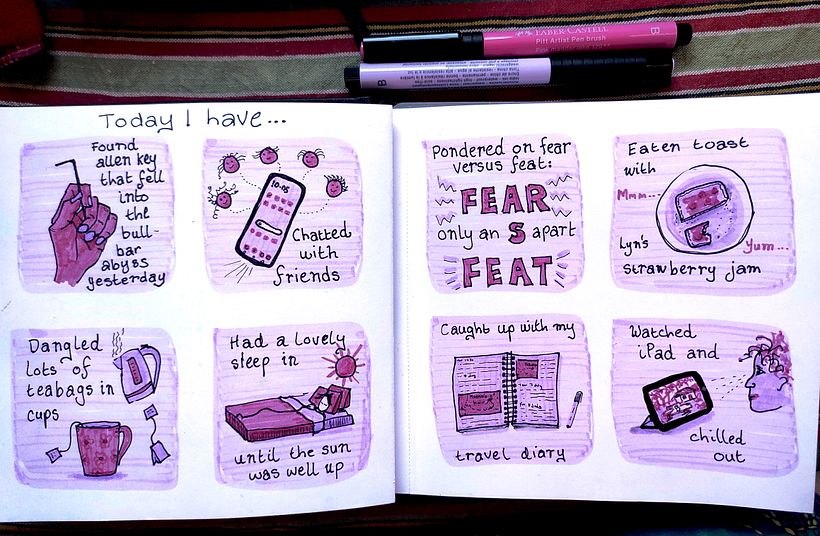 FABER-CASTELL
Pitt Artist Pen brush
B
B
Today I have...
Found
allen key
that fell
into
the
bull-
bar
abyss
yesterday
10.05
Chatted
with
friends
Dangled
lots of
teabags in
cups
Had a lovely
sleep in
until the sun
was well up
Pondered on fear
versus feat:
FEAR
only an S apart
FEAT
Eaten toast
with
Mmm...
Lyn's
Yum...
strawberry jam
Caught up with my
travel diary
Watched
iPad and
chilled
out